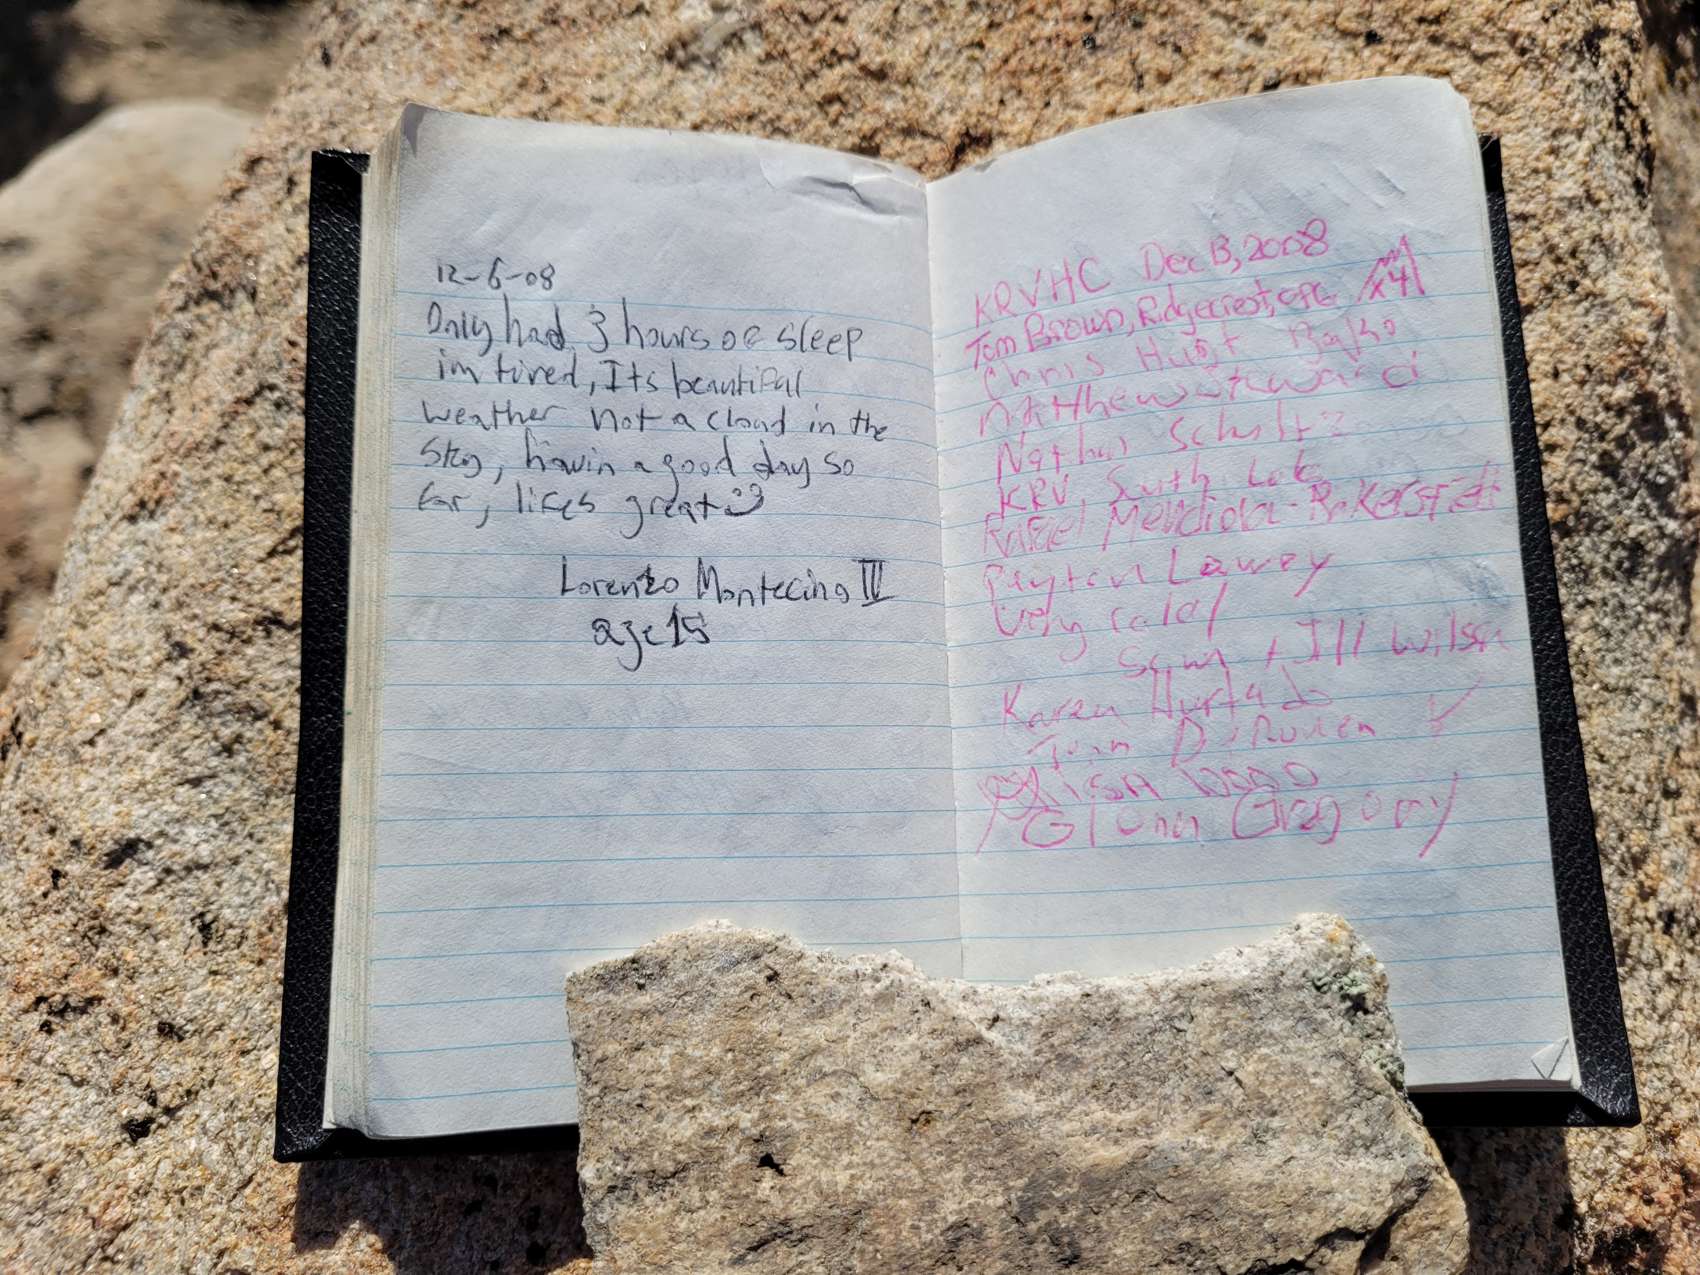 12-6-08
Only had 3 hours of sleep
im tired, Its beautiful
weather not a cloud in the
sky, havin a good day so
far, lifes great
Lorenzo Montecino III
age 15
KRVHC Dec 13, 2008
Tom Brown, Ridgecrest, x4
Chris Hunt
Matthew
Nathan Schultz
KRV, South Lake
Rafael Mendiola-Bakersfield
Payton Lawey
Very cold!
Sam + Jill Wilson
Karen Hurtado
Glenn Gregory